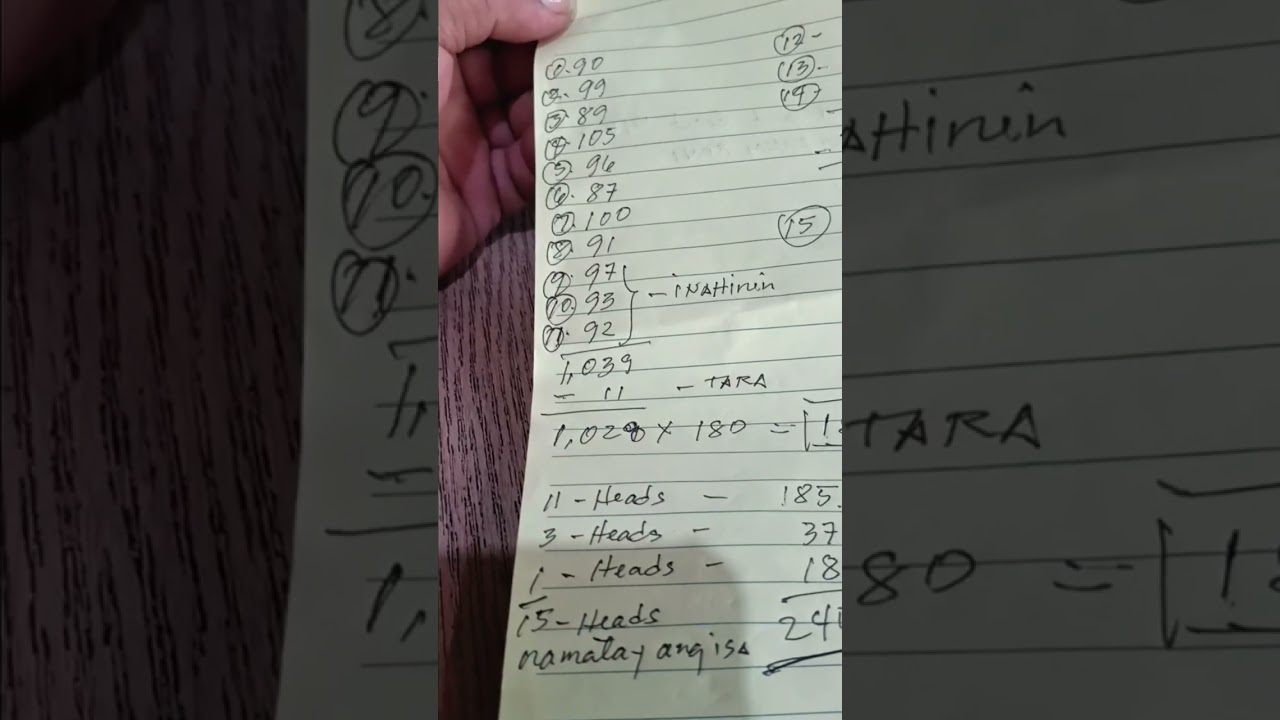 12-
① 90
13-
② 99
14
③ 89
④ 105
⑤ 96
⑥ 87
⑦ 100
15
⑧ 91
⑨ 97
⑩ 93 - iNAHinin
⑪ 92
1,039
- 11 - TARA
1,028 x 180 =
11 - Heads - 185.
3 - Heads - 37
1 - Heads - 18
15 - Heads 24
namatay ang isa